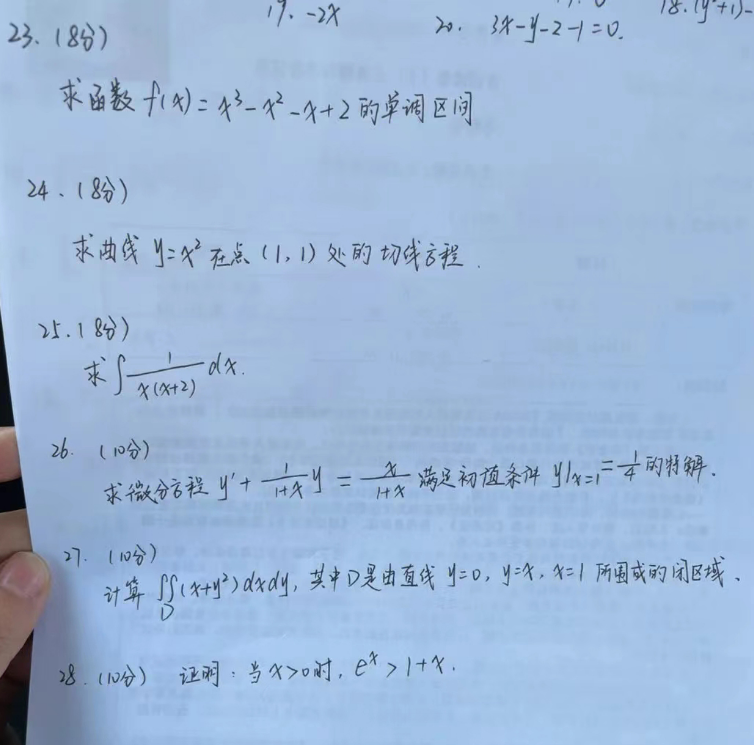 19. -2x
20. 3x-y-2-1=0.
18. (y²+1)-
23. (8分)
求函数 f(x)=x³-x²-x+2 的单调区间
24. (8分)
求曲线 y=x² 在点 (1,1) 处的切线方程.
25. (8分)
求 ∫ 1/(x(x+2)) dx.
26. (10分)
求微分方程 y'+1/(1+x) y = x/(1+x) 满足初值条件 y|x=1=1/4 的特解.
27. (10分)
计算 ∬D (x+y²)dxdy, 其中D是由直线 y=0, y=x, x=1 所围成的闭区域.
28. (10分) 证明: 当 x>0时, eˣ>1+x.